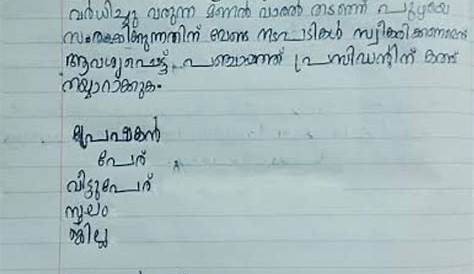 വർധിച്ചു വരുന്ന മണൽ വാരൽ തടഞ്ഞ് പുഴയെ
സംരക്ഷിക്കുന്നതിന് വേണ്ട നടപടികൾ സ്വീകരിക്കണമെന്ന്
ആവശ്യപ്പെട്ട് പഞ്ചായത്ത് പ്രസിഡന്റിന് കത്ത്
തയ്യാറാക്കുക.
പ്രേഷകൻ
പേര്
വീട്ടുപേര്
സ്ഥലം
ജില്ല